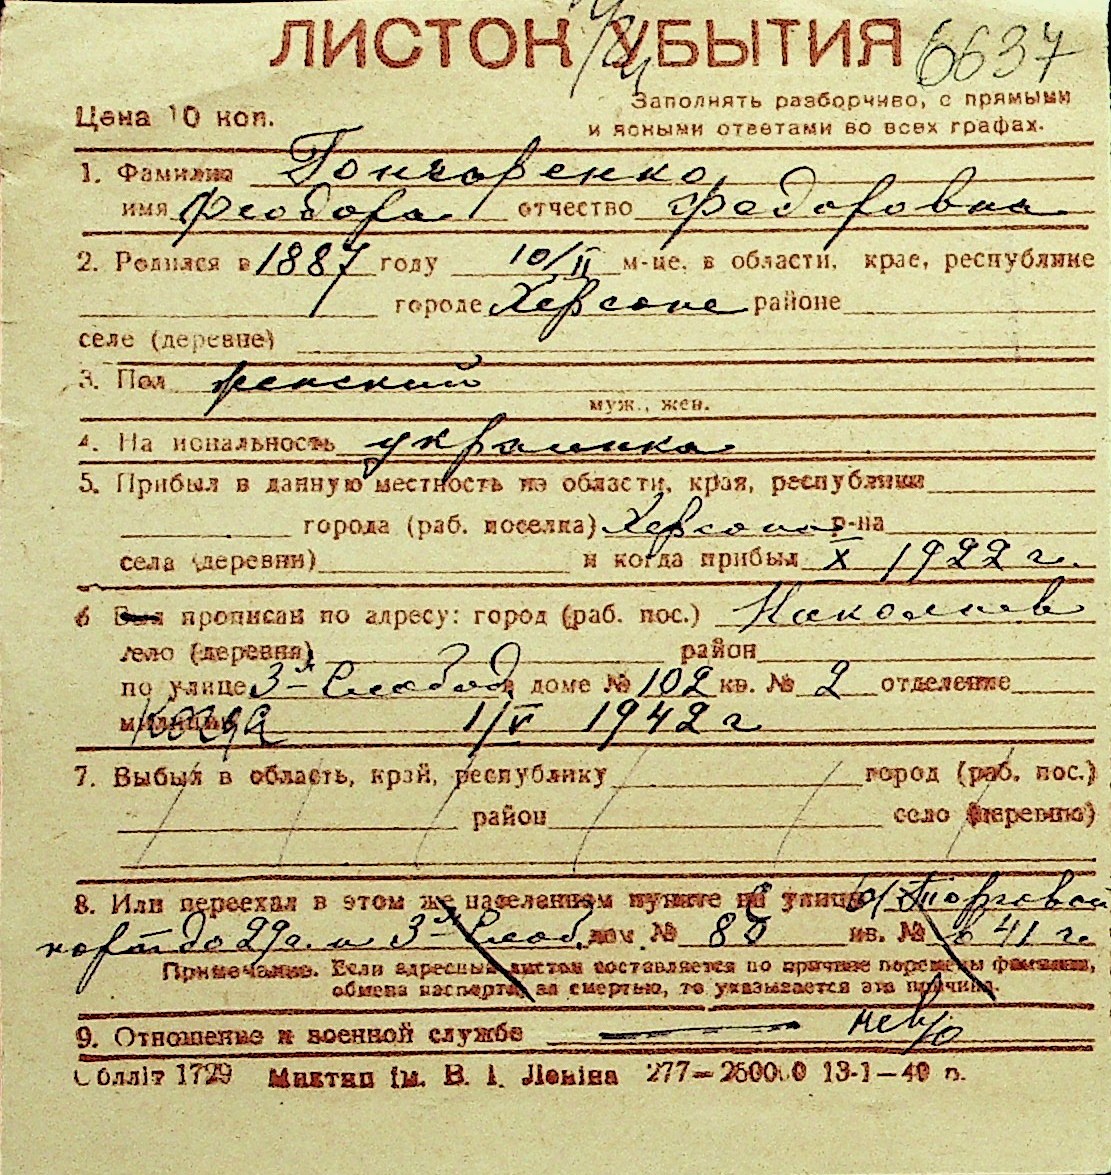 ЛИСТОК УБЫТИЯ 6637
Цена 10 коп.
Заполнять разборчиво, с прямыми
и ясными ответами во всех графах.
1. Фамилия Гончаренко
имя Феодора отчество Федоровна
2. Родился в 1887 году 10/II м-це, в области, крае, республике
городе Херсоне районе
селе (деревне)
3. Пол женский
муж., жен.
4. Национальность украинка
5. Прибыл в данную местность из области, края, республики
города (раб. поселка) Херсона р-на
села (деревни) и когда прибыл X 1922 г.
6 Был прописан по адресу: город (раб. пос.) Николаев
село (деревня) район
по улице 3я Слобод в доме № 102 кв. № 2 отделение
милиции когда 1/V 1942 г
7. Выбыл в область, край, республику город (раб. пос.)
район село (деревню)
8. Или переехал в этом же населенном пункте на улицу Торговой
до 29 г. и 3я Слоб. дом № кв. № в 41 г.
Примечание. Если адресный листок составляется по причине перемены фамилии,
обмена паспорта, за смертью, то указывается эта причина.
9. Отношение к военной службе нев/о
Обліт 1729 Миктип ім. В. І. Леніна 277—260000 13-1—40 р.